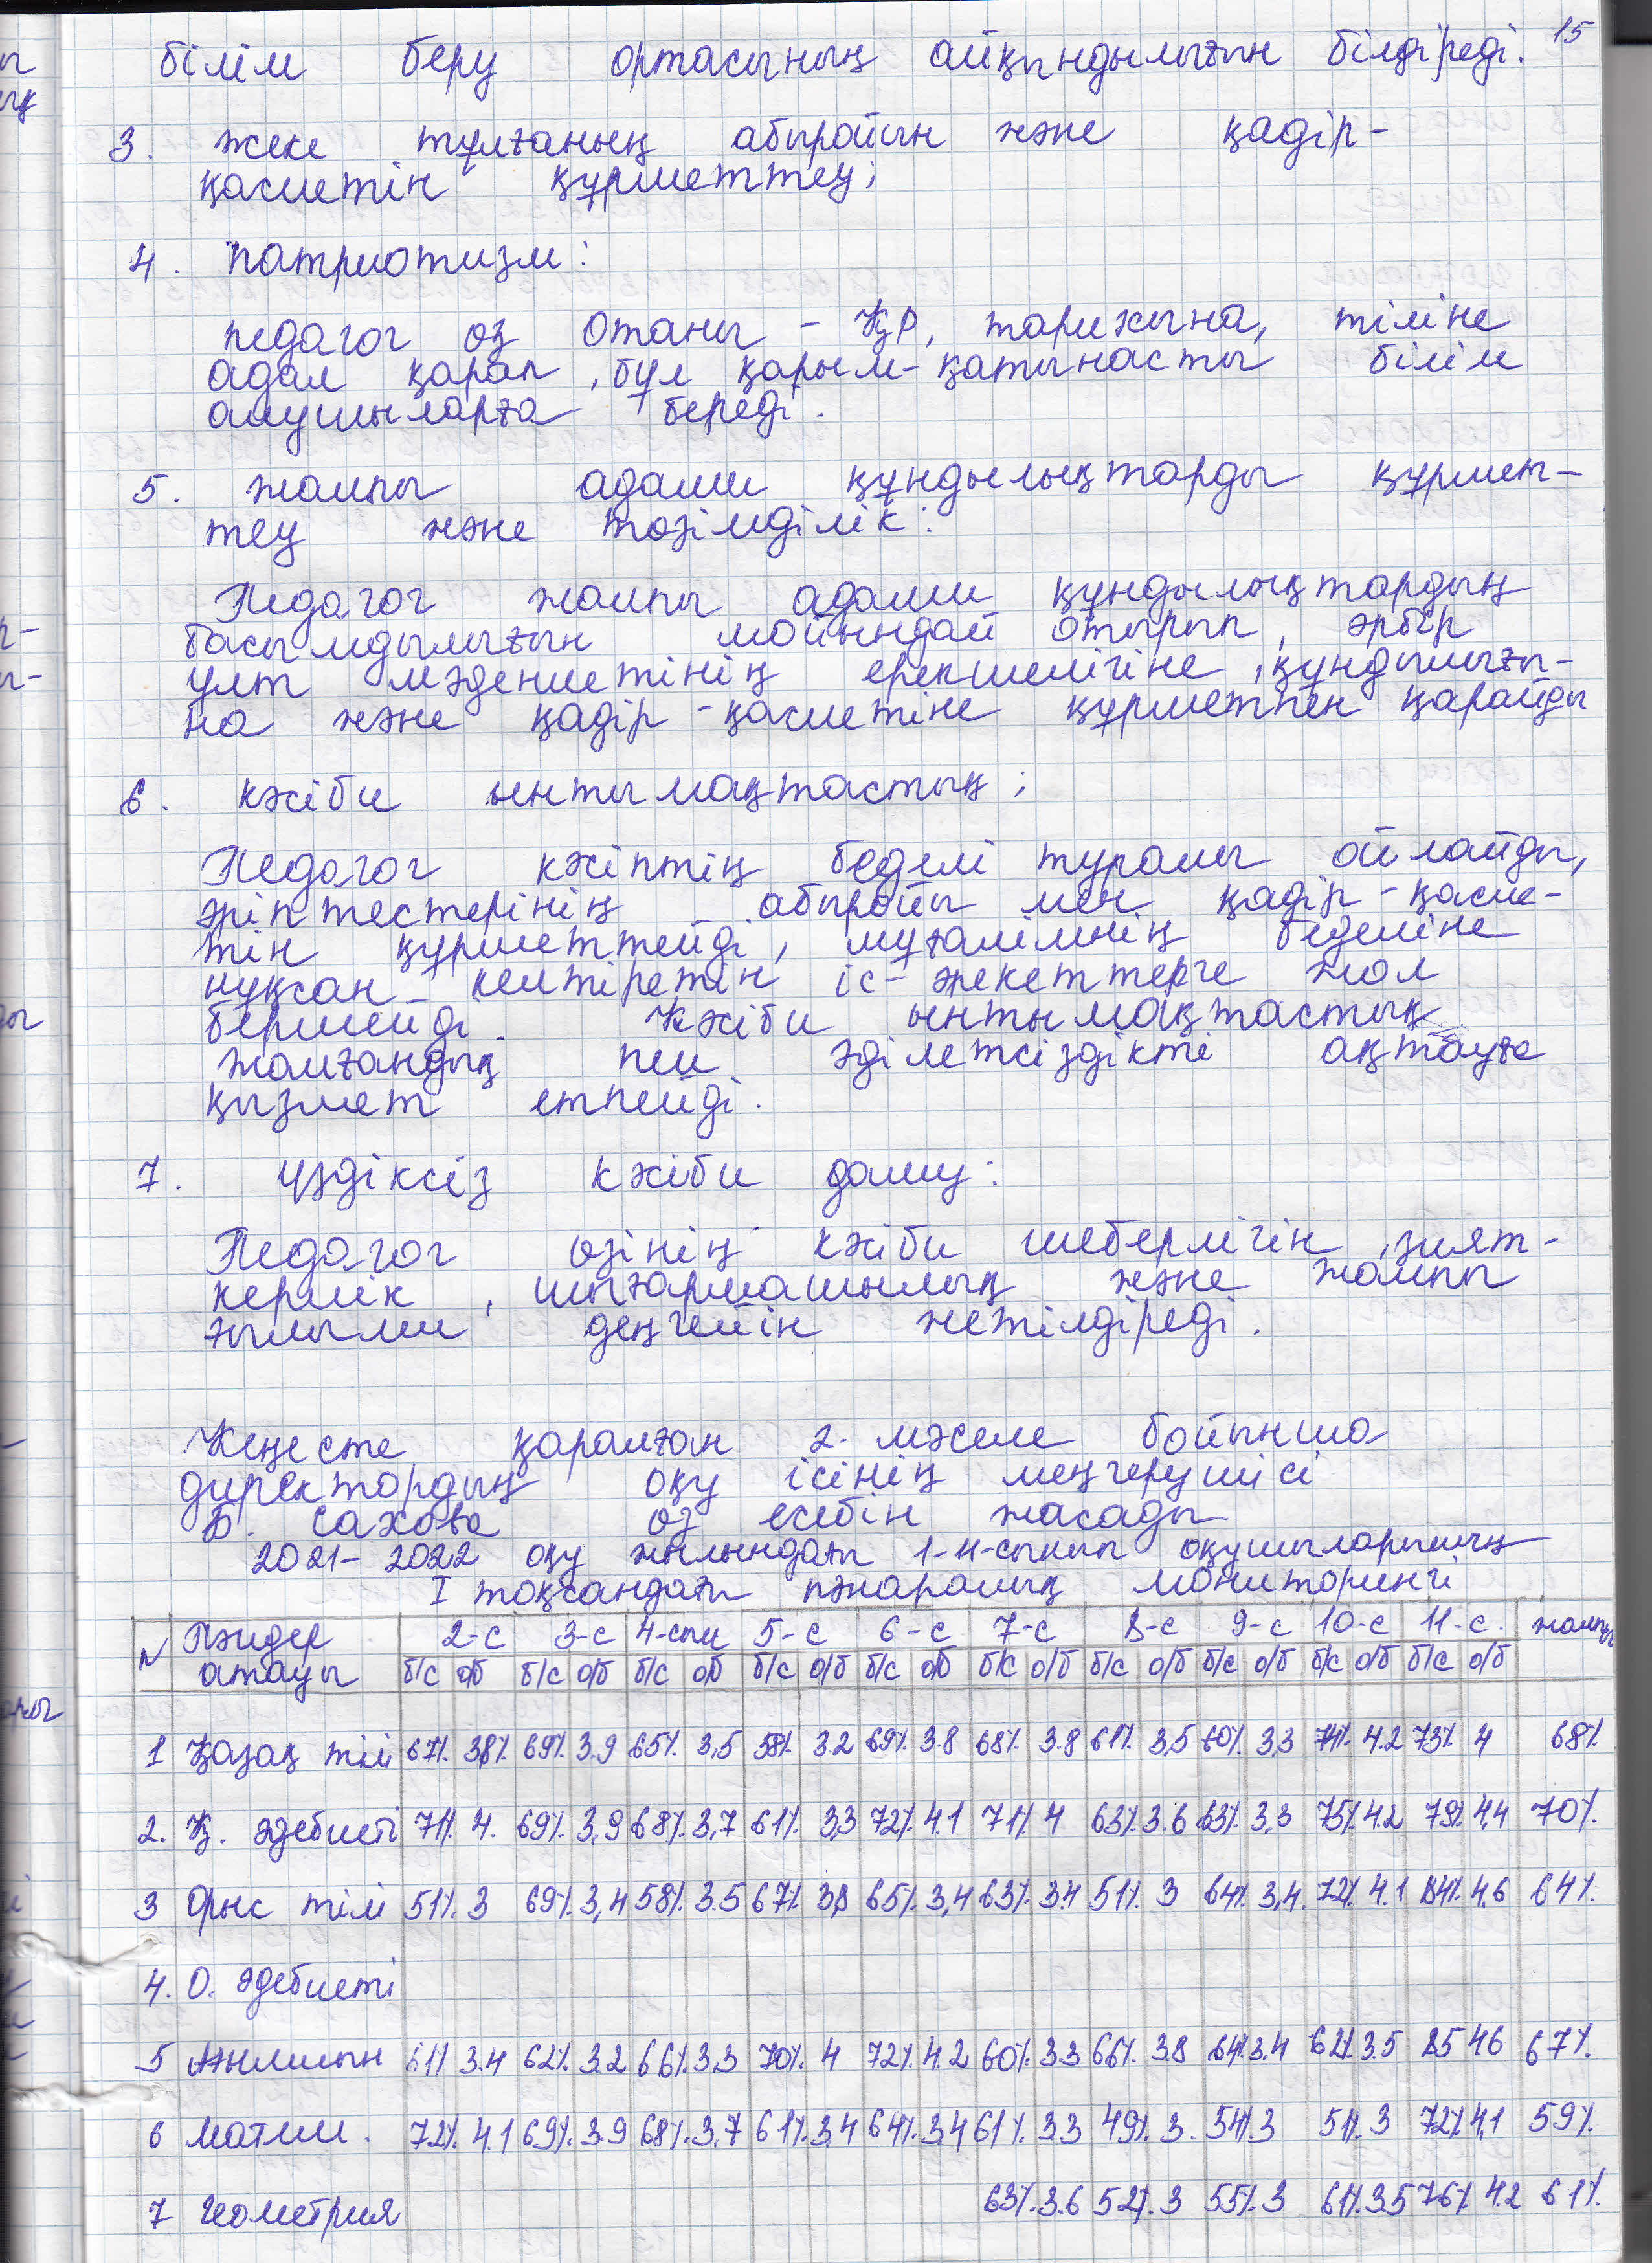 15
білім беру ортасының айқындылығын білдіреді.
3. жеке тұлғаның абыройын және қадір-
қасиетін құрметтеу;
4. патриотизм:
педагог өз Отаны - ҚР, тарихына, тіліне
адал қарап, бұл қарым-қатынасты білім
алушыларға береді.
5. жалпы адами құндылықтарды құрмет-
теу және төзімділік:
Педагог жалпы адами құндылықтардың
басымдылығын мойындай отырып, әрбір
ұлт мәдениетінің ерекшелігіне, құндылығы-
на және қадір-қасиетіне құрметпен қарайды
6. кәсіби ынтымақтастық;
Педагог кәсіптің беделі туралы ойлайды,
әріптестерінің абыройы мен қадір-қасие-
тін құрметтейді, мұғалімнің беделіне
нұқсан келтіретін іс-әрекеттерге жол
бермейді. Кәсіби ынтымақтастық
жалғандық пен әділетсіздікті ақтауға
қызмет етпейді.
7. үздіксіз кәсіби даму:
Педагог өзінің кәсіби шеберлігін, зият-
керлік, шығармашылық және жалпы
ғылыми деңгейін жетілдіреді.
Кеңесте қаралған 2-мәселе бойынша
директордың оқу ісінің меңгерушісі
Б. Сахова өз есебін жасады
2021-2022 оқу жылындағы 1-11-сынып оқушыларының
I тоқсандағы пәнаралық мониторингі
№ Пәндер 2-с 3-с 4-сын 5-с 6-с 7-с 8-с 9-с 10-с 11-с. жалпы
атауы б/с о/б б/с о/б б/с о/б б/с о/б б/с о/б б/с о/б б/с о/б б/с о/б б/с о/б б/с о/б
1 Қазақ тілі 67%. 38%. 69%. 3.9 65%. 3,5 58%. 3.2 69%. 3.8 68%. 3.8 61%. 3,5 60%. 3,3 74%. 4.2 73% 4 68%.
2. Қ. әдебиеті 71%. 4. 69%. 3,9 68%. 3,7 61%. 3,3 72%. 4.1 71% 4 63%. 3.6 63%. 3,3 75%. 4.2 79%. 4,4 70%.
3 Орыс тілі 51%. 3 69%. 3,4 58%. 3.5 67% 3,8 65%. 3,4 63%. 3.4 51%. 3 64%. 3,4. 72% 4.1 84%. 4,6 64%.
4. О. әдебиеті
5 61% 3.4 62%. 3.2 66%. 3,3 70%. 4 72%. 4.2 60%. 3.3 66%. 3.8 64% 3.4 62%. 3.5 85 4.6 67%.
6 Матем. 72%. 4.1 69%. 3.9 68%. 3,7 61%. 3,4 64%. 3,4 61%. 3.3 49%. 3. 54%. 3 51%. 3 72% 4,1 59%.
7 Геометрия 63%. 3.6 52%. 3 55%. 3 61%. 3.5 76% 4.2 61%.